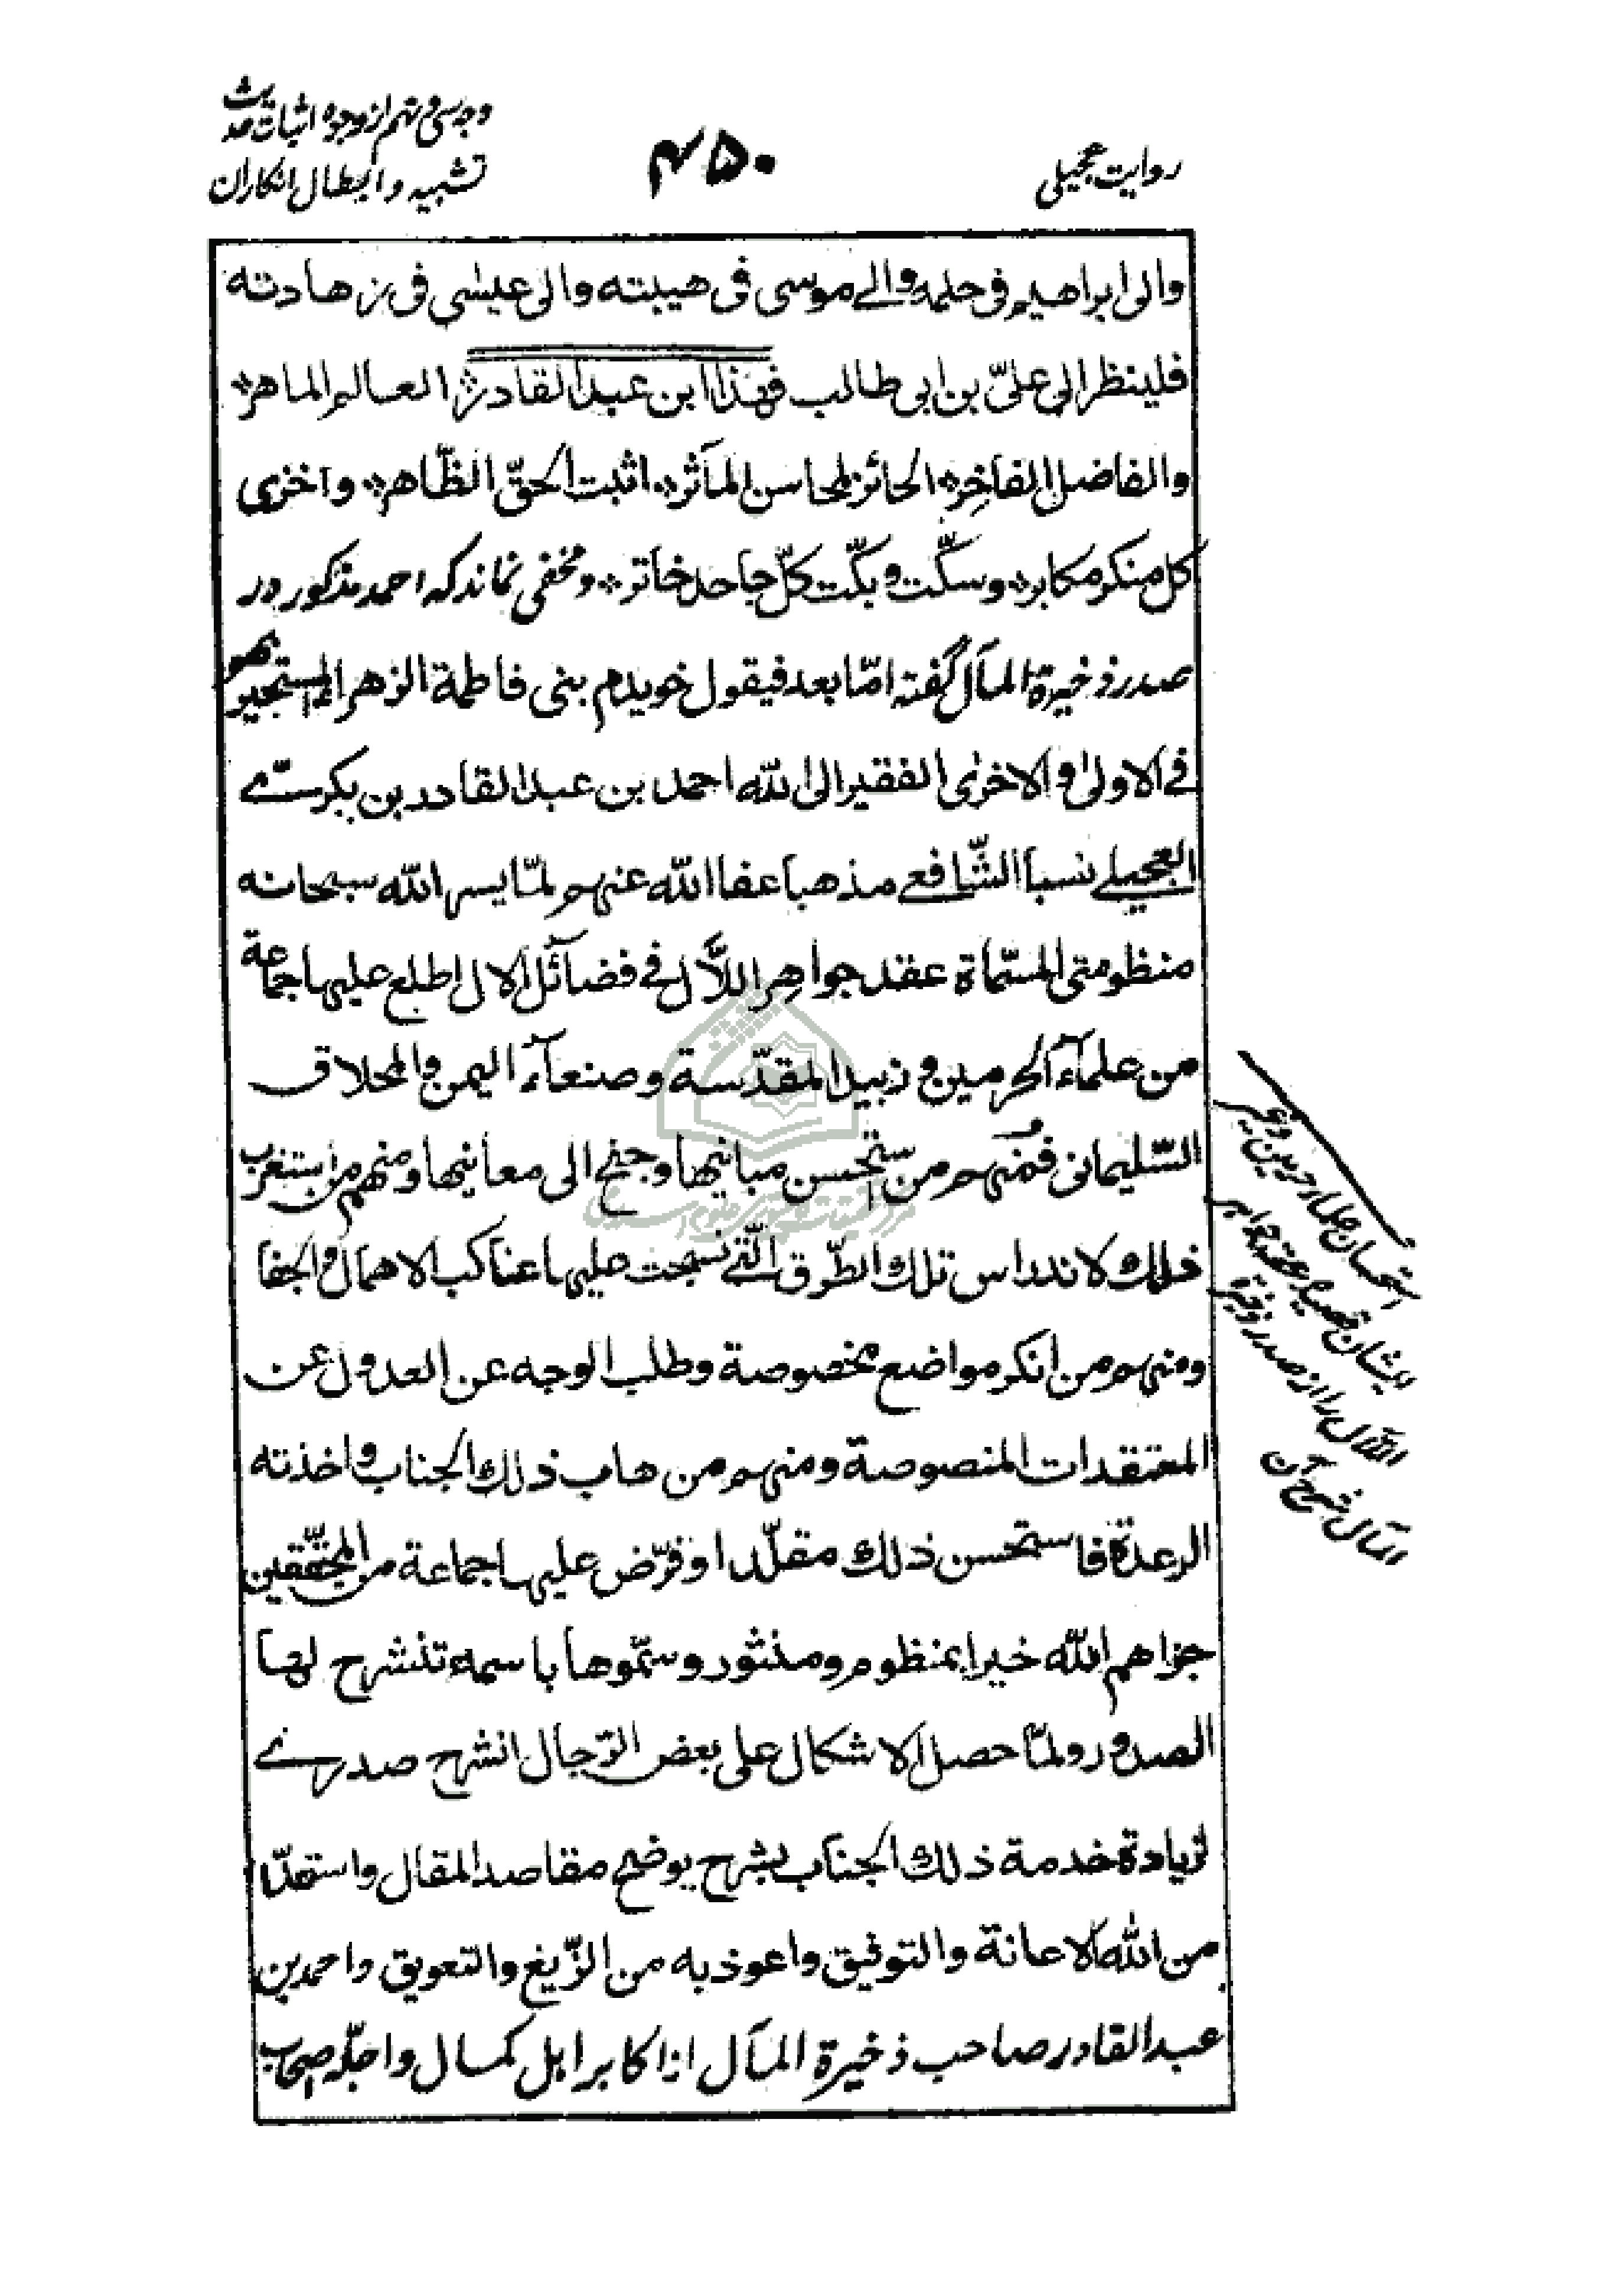 روایت عجیلی
۴۵۰
وجه سی و نهم از وجوه اثبات حدیث
تشبیه و ابطال انکاران
والی ابراهیم فی حلمه والے موسی فی هیبته والی عیسٰی فی زهادته
فلینظر الی علیّ بن ابی طالب فهذا ابن عبد القادر * العالم الماهر *
والفاضل الفاخر * الحائز لمحاسن المآثر * اثبت الحقّ الظّاهر * واخزی
کل منکر مکابر * وسکّت وبکّت کلّ جاحد خاتر * ومخفی نماند که احمد مذکور در
صدر ذخیرة المآل گفته امّا بعد فیقول خویدم بنی فاطمة الزهرا المستجیر بهم
فے الاولی والاخرٰی الفقیر الی الله احمد بن عبد القادر بن بکرسّے
العجیلے نسبا الشّافعے مذهبا عفا الله عنهم لمّا یسر الله سبحانه
منظومتی المسّماة عقد جواهر اللّآل فے فضآئل الال اطلع علیها جماعة
من علمآء الحرمین و زبید المقدّسة وصنعآء الیمن والمخلاف
السّلیمانی فمنهم من ستحسن مبانیها وجنح الی معانیها ومنهم من استغرب
ذلك لاندراس تلك الطّرق الّتے نسجت علیها عناکب الاهمال والجفا
ومنهم من انکر مواضع مخصوصة وطلب الوجه عن العدول عن
المعتقدات المنصوصة ومنهم من هاب ذلك الجناب واخذته
الرعدة فاستحسن ذلك مقلّدا وقرّض علیها جماعة من المحقّقین
جزاهم الله خیرا بمنظوم ومنثور وسمّوها باسمه تنشرح لها
الصدور ولمّا حصل الاشکال علی بعض الرّجال انشرح صدرے
لزیادة خدمة ذلك الجناب بشرح یوضح مقاصد المقال واستمدّ
من الله الاعانة والتوفیق واعوذ به من الزّیغ والتعویق واحمد بن
عبد القادر صاحب ذخیرة المآل از اکابر اهل کمال واجلّه اصحاب
استحسان علماء حرمین وغیر
ایشان قصیده عقد جواهر
اللآل را از صدر ذخیرة
المآل شرح آن